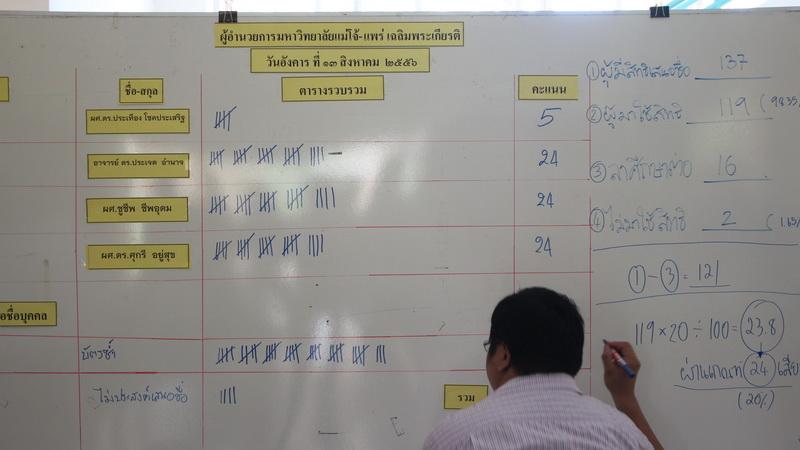 ผู้อำนวยการมหาวิทยาลัยแม่โจ้-แพร่ เฉลิมพระเกียรติ
วันอังคาร ที่ ๑๓ สิงหาคม ๒๕๕๖
ชื่อ-สกุล ตารางรวบรวม คะแนน
ผศ.ดร.ประเทือง โชคประเสริฐ 5
อาจารย์ ดร.ประเจต อำนาจ 24
ผศ.ชูชีพ ชีพอุดม 24
ผศ.ดร.ศุกรี อยู่สุข 24
ชื่อบุคคล
บัตรซ้ำ
ไม่ประสงค์เสนอชื่อ
รวม
① ผู้มีสิทธิเสนอชื่อ 137
② ผู้มาใช้สิทธิ 119
③ ลาศึกษาต่อ 16
④ ไม่มาใช้สิทธิ 2
①-③ = 121
119 × 20 ÷ 100 = 23.8
ผ่านเกณฑ์ 24
(20%)